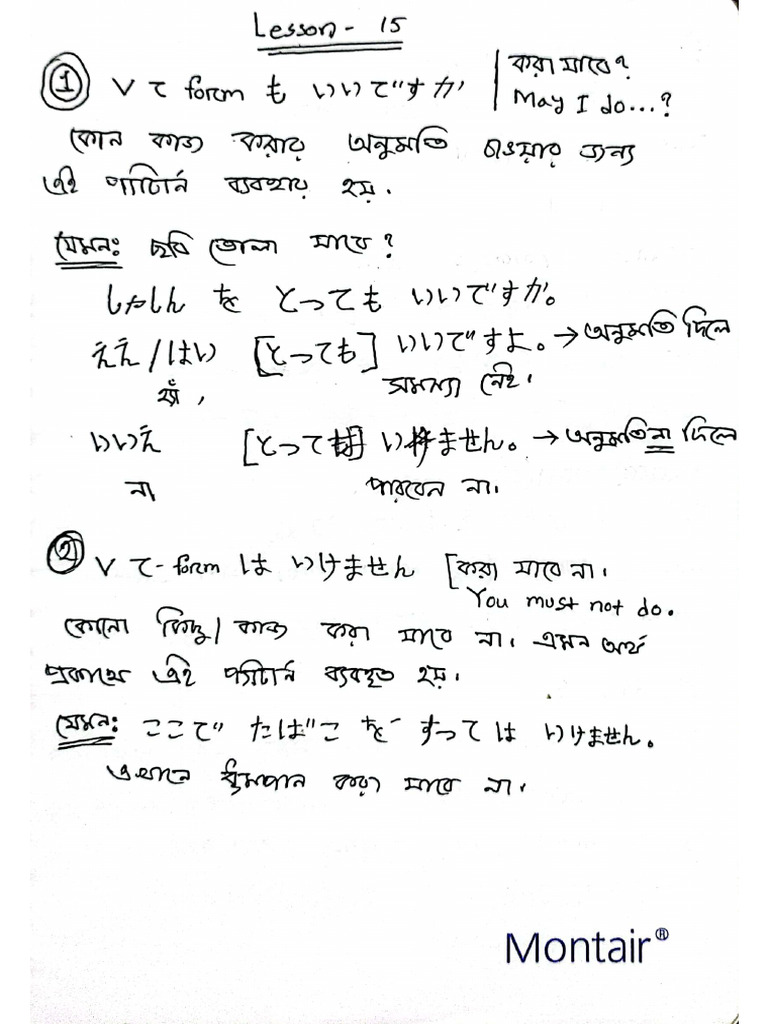 Lesson - 15
① V て form も いいですか | করা যাবে?
May I do...?
কোন কাজ করার অনুমতি চাওয়ার জন্য
এই প্যাটার্ন ব্যবহার হয়.
যেমনঃ ছবি তোলা যাবে?
しゃしん を とっても いいですか。
ええ/はい [とっても] いいですよ。→ অনুমতি দিলে
হ্যাঁ, সমস্যা নেই।
いいえ [とっては] いけません。→ অনুমতি না দিলে
না, পারবেন না।
② V て-form は いけません [করা যাবে না।
You must not do.
কোনো কিছু/কাজ করা যাবে না। এমন অর্থ
প্রকাশে এই প্যাটার্ন ব্যবহৃত হয়.
যেমনঃ ここで たばこ を すっては いけません。
এখানে ধূমপান করা যাবে না।
Montair®